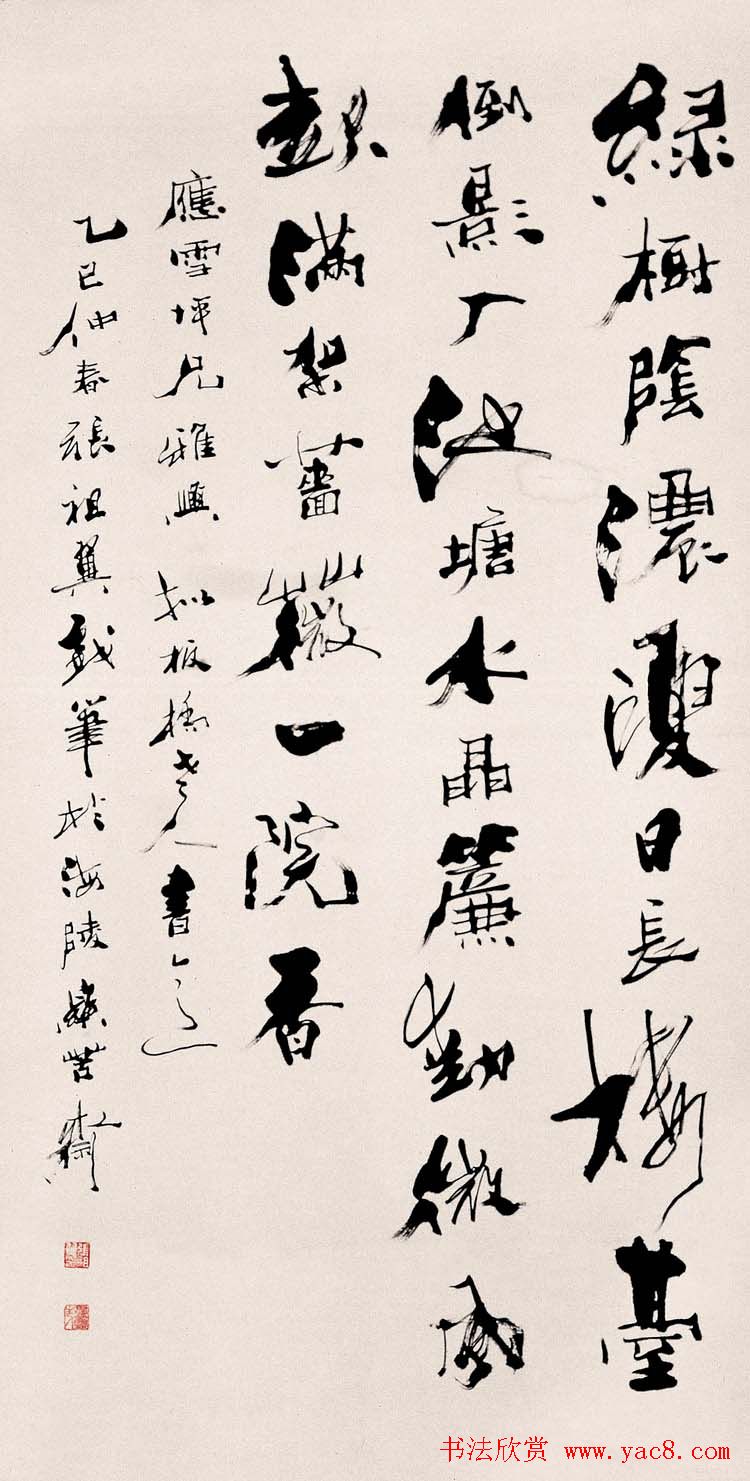 綠樹陰濃夏日長樓臺
倒影入池塘水晶簾動微風
起滿架薔薇一院香
應雪坪兄雅興 拟板橋老人書
乙巳仲春張祖翼戲筆於海陵苦齋
书法欣赏 www.yac8.com